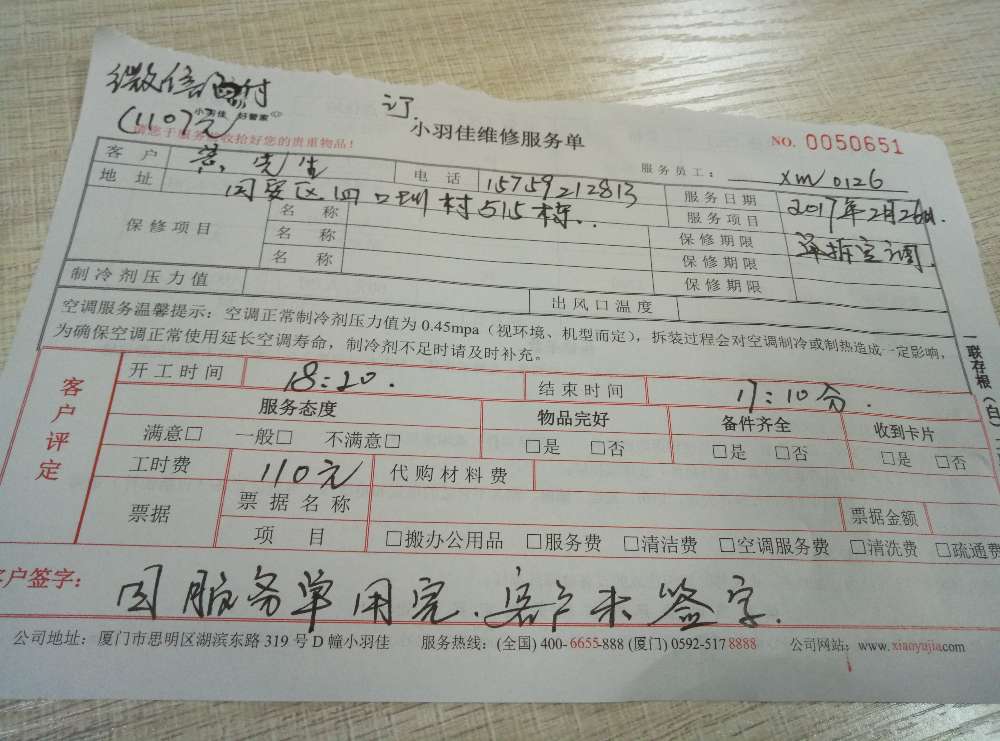 微信支付
订
(110元)
小羽佳 好管家
小羽佳维修服务单
NO. 0050651
请您于服务前收拾好您的贵重物品！
服务员工： xm0126
客户 先生 电话 15759212813 服务日期 2017年2月26日
地址 区四口圳村515栋 服务项目 拆空调
保修项目 名称 保修期限
名称 保修期限
名称 保修期限
制冷剂压力值 出风口温度
空调服务温馨提示：空调正常制冷剂压力值为0.45mpa（视环境、机型而定），拆装过程会对空调制冷或制热造成一定影响，
为确保空调正常使用延长空调寿命，制冷剂不足时请及时补充。
一联存根（白）
客户评定
开工时间 18:20. 结束时间 17:10分.
服务态度 物品完好 备件齐全 收到卡片
满意□ 一般□ 不满意□ □是 □否 □是 □否 □是 □否
工时费 110元 代购材料费
票据 票据名称 票据金额
项目 □搬办公用品 □服务费 □清洁费 □空调服务费 □清洗费 □疏通费
客户签字： 因服务单用完.客户未签字.
公司地址：厦门市思明区湖滨东路319号D幢小羽佳 服务热线：(全国) 400-6655-888 (厦门) 0592-5178888 公司网站：www.xiaoyujia.com